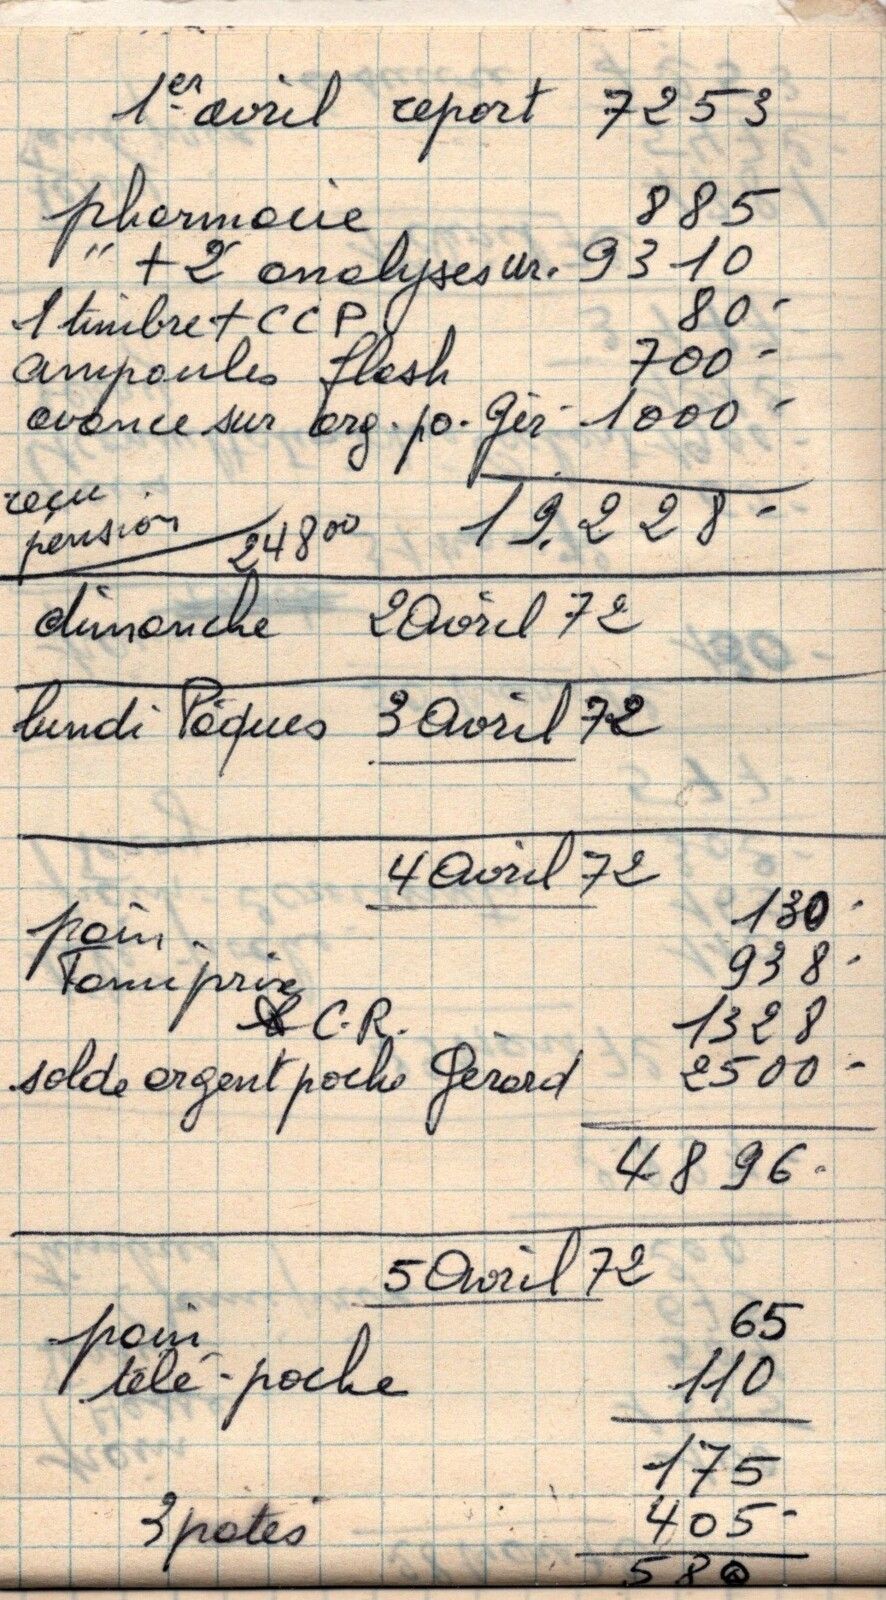 1er avril report 7253
pharmacie 885
" + 2 analyses ur. 9310
1 timbre + CCP 80-
ampoules flash 700-
avance sur arg. po. Gér 1000-
reçu
pension 24800 19.228-
dimanche 2 Avril 72
lundi Pâques 3 Avril 72
4 Avril 72
pain 130-
Famiprix 938-
C.R. 1328
solde argent poche Gérard 2500-
4896-
5 Avril 72
pain 65
télé-poche 110
175
3 pates 405-
580